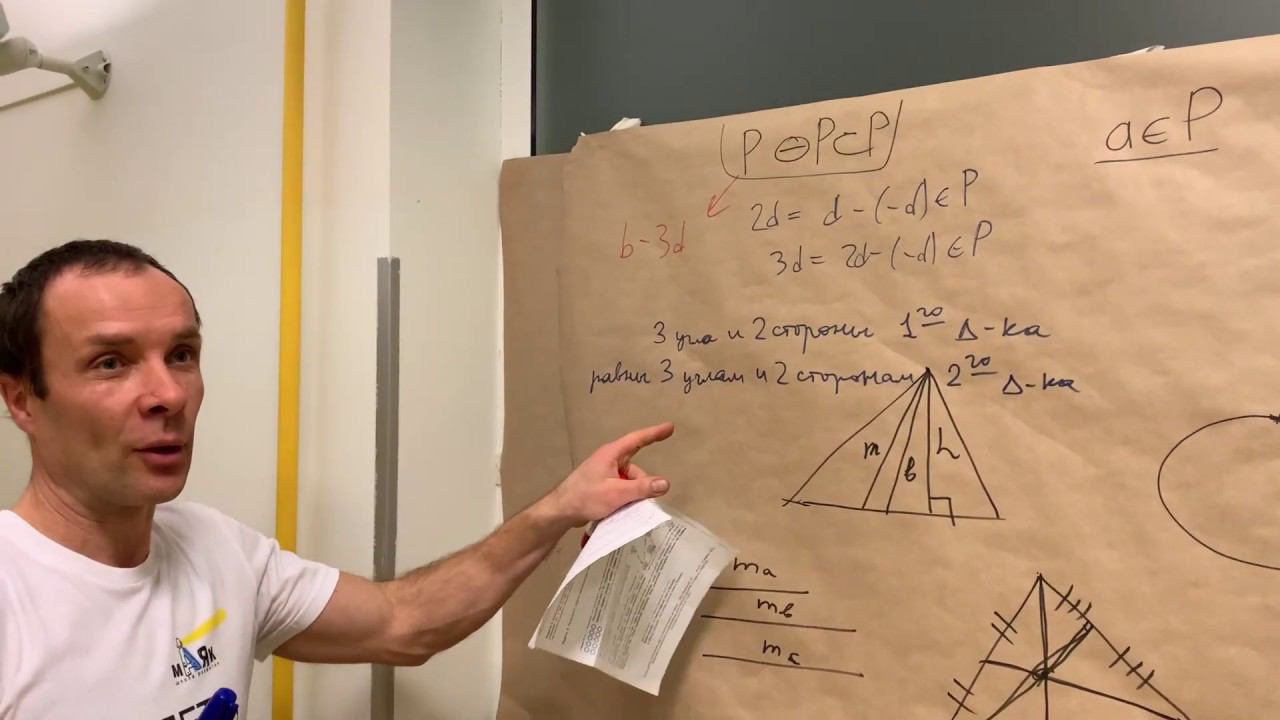 P ⊖ P ⊂ P
a ∈ P
2d = d - (-d) ∈ P
b - 3d
3d = 2d - (-d) ∈ P
3 угла и 2 стороны 1го Δ-ка
равны 3 углам и 2 сторонам 2го Δ-ка
m
b
h
ma
mb
mc
МАЯК